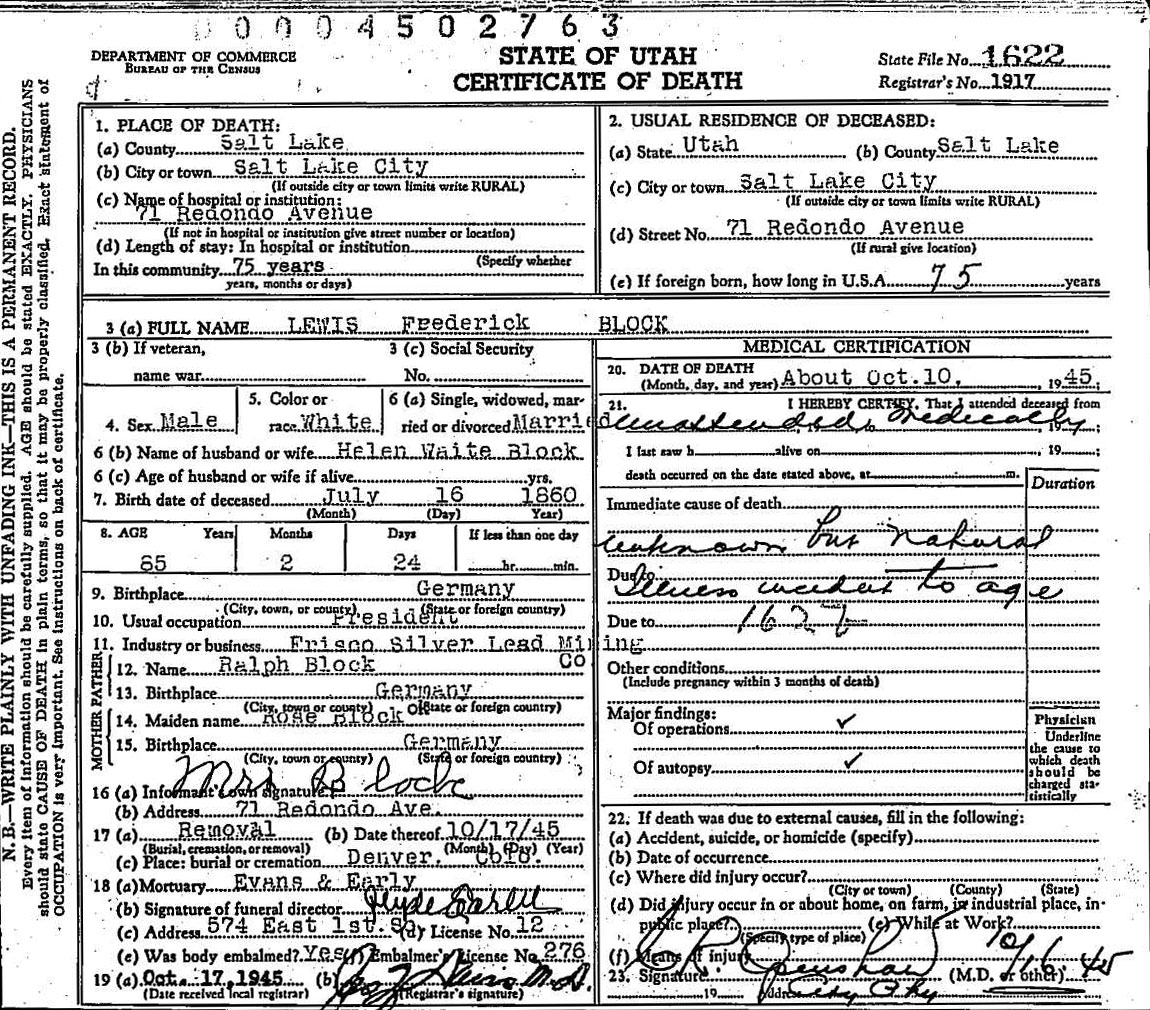 0004502763
DEPARTMENT OF COMMERCE
BUREAU OF THE CENSUS
STATE OF UTAH
CERTIFICATE OF DEATH
State File No. 1622
Registrar's No. 1917
N. B.—WRITE PLAINLY WITH UNFADING INK—THIS IS A PERMANENT RECORD.
Every item of information should be carefully supplied. AGE should be stated EXACTLY. PHYSICIANS
should state CAUSE OF DEATH in plain terms, so that it may be properly classified. Exact statement of
OCCUPATION is very important. See instructions on back of certificate.
1. PLACE OF DEATH:
(a) County Salt Lake
(b) City or town Salt Lake City
(If outside city or town limits write RURAL)
(c) Name of hospital or institution:
71 Redondo Avenue
(If not in hospital or institution give street number or location)
(d) Length of stay: In hospital or institution
(Specify whether
In this community 75 years
years, months or days)
2. USUAL RESIDENCE OF DECEASED:
(a) State Utah (b) County Salt Lake
(c) City or town Salt Lake City
(If outside city or town limits write RURAL)
(d) Street No. 71 Redondo Avenue
(If rural give location)
(e) If foreign born, how long in U.S.A 75 years
3 (a) FULL NAME LEWIS Frederick BLOCK
3 (b) If veteran,
name war
3 (c) Social Security
No.
4. Sex Male
5. Color or
race White
6 (a) Single, widowed, mar-
ried or divorced Married
6 (b) Name of husband or wife Helen Waite Block
6 (c) Age of husband or wife if alive yrs.
7. Birth date of deceased July 16 1860
(Month) (Day) Year)
8. AGE Years Months Days If less than one day
85 2 24 hr. min.
9. Birthplace Germany
(City, town, or county) (State or foreign country)
10. Usual occupation President
11. Industry or business Frisco Silver Lead Mining
Co
FATHER
12. Name Ralph Block
13. Birthplace Germany
(City, town or county) (State or foreign country)
MOTHER
14. Maiden name Rose Block
15. Birthplace Germany
(City, town or county) (State or foreign country)
16 (a) Informant's own signature Mrs Block
(b) Address 71 Redondo Ave.
17 (a) Removal (b) Date thereof 10/17/45
(Burial, cremation, or removal) (Month) (Day) (Year)
(c) Place: burial or cremation Denver, Colo.
18 (a) Mortuary Evans & Early
(b) Signature of funeral director
(c) Address 574 East 1st.S (d) License No. 12
(e) Was body embalmed? Yes (f) Embalmer's License No. 276
19 (a) Oct. 17, 1945 (b) M.D.
(Date received local registrar) (Registrar's signature)
MEDICAL CERTIFICATION
20. DATE OF DEATH
(Month, day, and year) About Oct.10, 1945;
21. I HEREBY CERTIFY, That I attended deceased from
unattended medically
I last saw h alive on , 19 ;
death occurred on the date stated above, at m.
Duration
Immediate cause of death
unknown but natural
Due to
illness incident to age
Due to 162
Other conditions
(Include pregnancy within 3 months of death)
Major findings:
Of operations ✓
Of autopsy ✓
Physician
Underline
the cause to
which death
should be
charged sta-
tistically
22. If death was due to external causes, fill in the following:
(a) Accident, suicide, or homicide (specify)
(b) Date of occurrence
(c) Where did injury occur?
(City or town) (County) (State)
(d) Did injury occur in or about home, on farm, in industrial place, in-
public place? (e) While at Work?
(Specify type of place)
(f) Means of injury 10/16 45
23. Signature (M.D. or other)
19 Address City